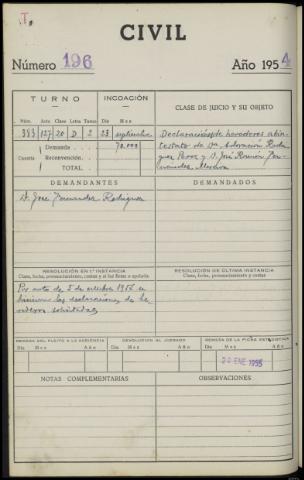 T.
CIVIL
Número 196 Año 1954
TURNO
INCOACIÓN
CLASE DE JUICIO Y SU OBJETO
Núm. Acta Clase Letra Tomo Día Mes
383 127 20 D 2 23 septiembre
Declaración de herederos abin-
Cuantía
Demanda 70.000
testato de Dª Adoración Rodrí-
Reconvención.
guez Pérez y D. José Ramón Fer-
TOTAL
nández
DEMANDANTES
DEMANDADOS
D. José Fernández Rodríguez
RESOLUCIÓN EN 1.ª INSTANCIA
Clase, fecha, pronunciamiento, costas y si fué firme o apelada
RESOLUCIÓN DE ÚLTIMA INSTANCIA
Clase, fecha, pronunciamiento y costas
Por auto de 5 de octubre 195
hicieron las declaraciones de he-
rederos solicitadas
REMISIÓN DEL PLEITO A LA AUDIENCIA
DEVOLUCIÓN AL JUZGADO
REMISIÓN DE LA FICHA ESTADÍSTICA
Día Mes Año
Día Mes Año
Día Mes Año
20 ENE 1955
NOTAS COMPLEMENTARIAS
OBSERVACIONES